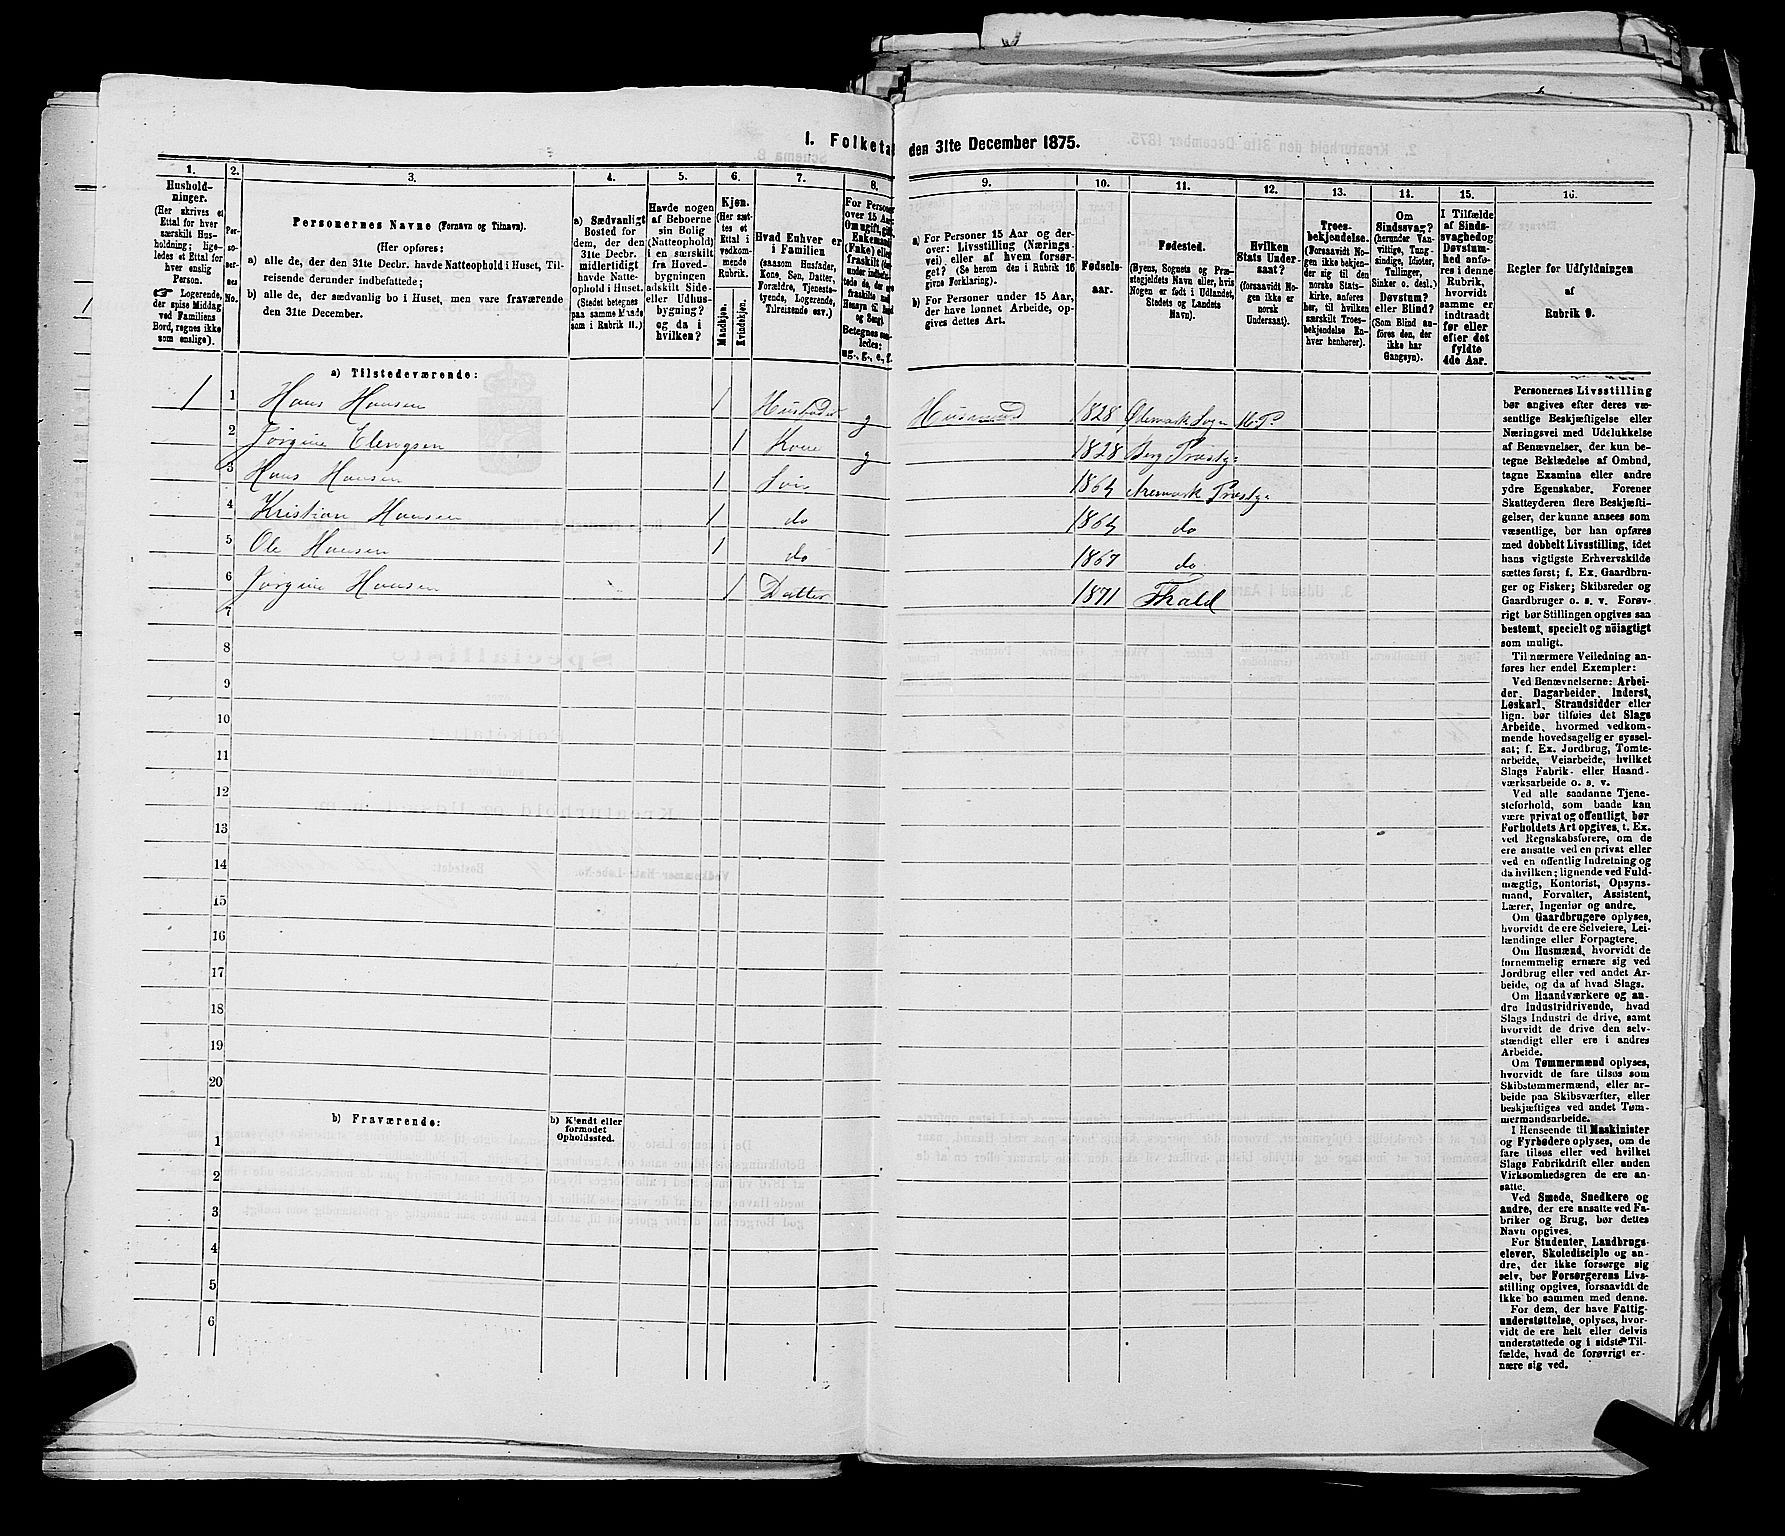 1. Folketal den 31te December 1875.
1. 2. 3. 4. 5. 6. 7. 8. 9. 10. 11. 12. 13. 14. 15. 16.
Hushold-
ninger.
(Her skrives et
Ettal for hver
særskilt Hus-
holdning; lige-
ledes et Ettal for
hver enslig
Person.
Logerende,
der spise Middag
ved Familiens
Bord, regnes ikke
som enslige).
Per-
so-
ner-
nes
No.
Personernes Navne (Fornavn og Tilnavn).
(Her opføres:
a) alle de, der den 31te Decbr. havde Natteophold i Huset, Til-
reisende derunder indbefattede;
b) alle de, der sædvanlig bo i Huset, men vare fraværende
den 31te December.
a) Sædvanligt
Bosted for
dem, der den
31te Decbr.
midlertidigt
havde Natte-
ophold i Huset.
(Stedet betegnes
paa samme Maade
som i Rubrik 11.)
Havde nogen
af Beboerne
sin Bolig
(Natteophold)
i en særskilt
fra Hoved-
bygningen
adskilt Side-
eller Udhus-
bygning?
og da i
hvilken?
Kjøn.
(Her sæt-
tes et
Ettal i
vedkom-
mende
Rubrik.
Mandkjøn.
Kvindekjøn.
Hvad Enhver er
i Familien
(saasom Husfader,
Kone, Søn, Datter,
Forældre, Tjeneste-
tyende, Logerende,
Tilreisende osv.)
For Personer
over 15 Aar:
Om ugift, gift,
Enkemand
(Enke) eller
fraskilt
Betegnes saa-
ledes:
ug., g., e., f.
a) For Personer 15 Aar og der-
over: Livsstilling (Nærings-
vei) eller af hvem forsør-
get? (Se herom den i Rubrik 16
givne Forklaring).
b) For Personer under 15 Aar,
der have lønnet Arbeide, op-
gives dettes Art.
Fødsels-
aar.
Fødested.
(Byens, Sognets og Præ-
stegjeldets Navn eller, hvis
Nogen er født i Udlandet,
Stedets og Landets
Navn).
Hvilken
Stats Under-
saat?
(forsaavidt No-
gen ikke er
norsk
Undersaat).
Troes-
bekjendelse.
(Forsaavidt No-
gen ikke bekjen-
der sig til den
norske Stats-
kirke, anføres
her, til hvilken
særskilt Troes-
bekjendelse En-
hver henhører).
Om
Sindssvag?
(herunder Van-
vittige, Tung-
sindige, Idioter,
Tullinger,
Sinker o. desl.)
Døvstum?
eller Blind?
(Som Blind an-
føres den, der
ikke har
Gangsyn).
I Tilfælde
af Sinds-
svaghed og
Døvstum-
hed anfø-
res i denne
Rubrik,
hvorvidt
samme er
indtraadt
før eller
efter det
fyldte
4de Aar.
Regler for Udfyldningen
af
Rubrik 9.
a) Tilstedeværende:
1 1 Hans Hansen 1 Husfader g Husmand 1828 Ødemark Sogn
2 Jørgine Elengsen 1 Kone g 1828 Berg Præstg
3 Hans Hansen 1 Søn 1864 Aremark Præstg
4 Kristian Hansen 1 do 1864 do
5 Ole Hansen 1 do 1867 do
6 Jørgine Hansen 1 Datter 1871 Fhald
7
8
9
10
11
12
13
14
15
16
17
18
19
20
b) Fraværende:
b) Kjendt eller
formodet
Opholdssted.
1
2
3
4
5
6
Personernes Livsstilling
bør angives efter deres væ-
sentlige Beskjæftigelse eller
Næringsvei med Udelukkelse
af Benævnelser, der kun be-
tegne Beklædelse af Ombud,
tagne Examina eller andre
ydre Egenskaber. Forener
Skatteyderen flere Beskjæfti-
gelser, der kunne ansees som
væsentlige, bør han opføres
med dobbelt Livsstilling, idet
hans vigtigste Erhvervskilde
sættes først; f. Ex. Gaardbru-
ger og Fisker; Skibsreder og
Gaardbruger o. s. v. Forøv-
rigt bør Stillingen opgives saa
bestemt, specielt og nøiagtigt
som muligt.
Til nærmere Veiledning an-
føres her endel Exempler:
Ved Benævnelserne: Arbei-
der, Dagarbeider, Inderst,
Løskarl, Strandsidder eller
lign. bør tilføies det Slags
Arbeide, hvormed vedkom-
mende hovedsagelig er syssel-
sat; f. Ex. Jordbrug, Tomte-
arbeide, Veiarbeide, hvilket
Slags Fabrik- eller Haand-
værksarbeide o. s. v.
Ved alle saadanne Tjene-
steforhold, som baade kan
være privat og offentligt, bør
Forholdets Art opgives, t. Ex.
ved Regnskabsførere, om de
ere ansatte ved en privat eller
ved en offentlig Indretning og
da hvilken; lignende ved Fuld-
mægtig, Kontorist, Opsyns-
mand, Forvalter, Assistent,
Lærer, Ingeniør og andre.
Om Gaardbrugere oplyses,
hvorvidt de ere Selveiere, Lei-
lændinge eller Forpagtere.
Om Husmænd, hvorvidt de
fornemmelig ernære sig ved
Jordbrug eller ved andet Ar-
beide, og da af hvad Slags.
Om Haandværkere og an-
dre Industridrivende, hvad
Slags Industri de drive, samt
hvorvidt de drive den selv-
stændigt eller ere i andres
Arbeide.
Om Tømmermænd oplyses,
hvorvidt de fare tilsøs som
Skibstømmermænd, eller ar-
beide paa Skibsværfter, eller
beskjæftiges ved andet Tøm-
mermandsarbeide.
I Henseende til Maskinister
og Fyrbødere oplyses, om de
fare tilsøs eller ved hvilket
Slags Fabrikdrift eller anden
Virksomhedsgren de ere an-
satte.
Ved Smede, Snedkere og
andre, der ere ansatte ved Fa-
briker og Brug, bør dettes
Navn opgives.
For Studenter, Landbrugs-
elever, Skoledisciple og an-
dre, der ikke forsørge sig
selv, bør Forsørgerens Livs-
stilling opgives, forsaavidt de
ikke bo sammen med denne.
For dem, der have Fattig-
understøttelse, oplyses, hvor-
vidt de ere helt eller delvis
understøttede og i sidste Til-
fælde, hvad de forøvrigt er-
nære sig ved.